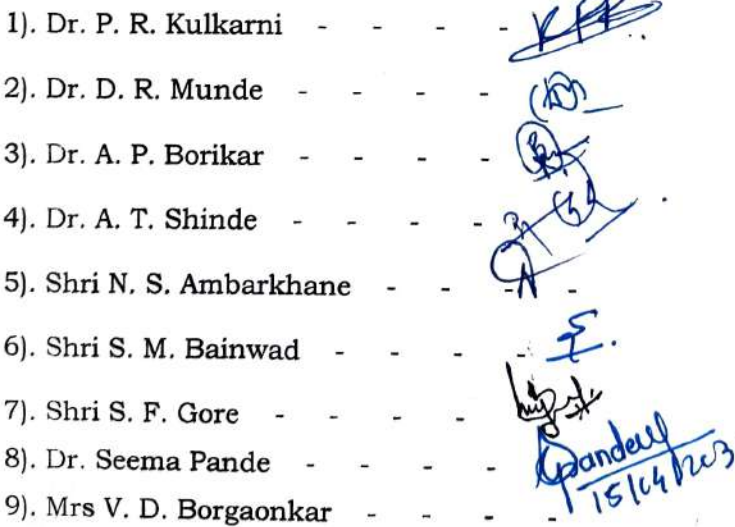 1). Dr. P. R. Kulkarni - - - -
2). Dr. D. R. Munde - - - -
3). Dr. A. P. Borikar - - - -
4). Dr. A. T. Shinde - - - -
5). Shri N. S. Ambarkhane - - - -
6). Shri S. M. Bainwad - - - -
7). Shri S. F. Gore - - - -
8). Dr. Seema Pande - - - -
9). Mrs V. D. Borgaonkar - - - -